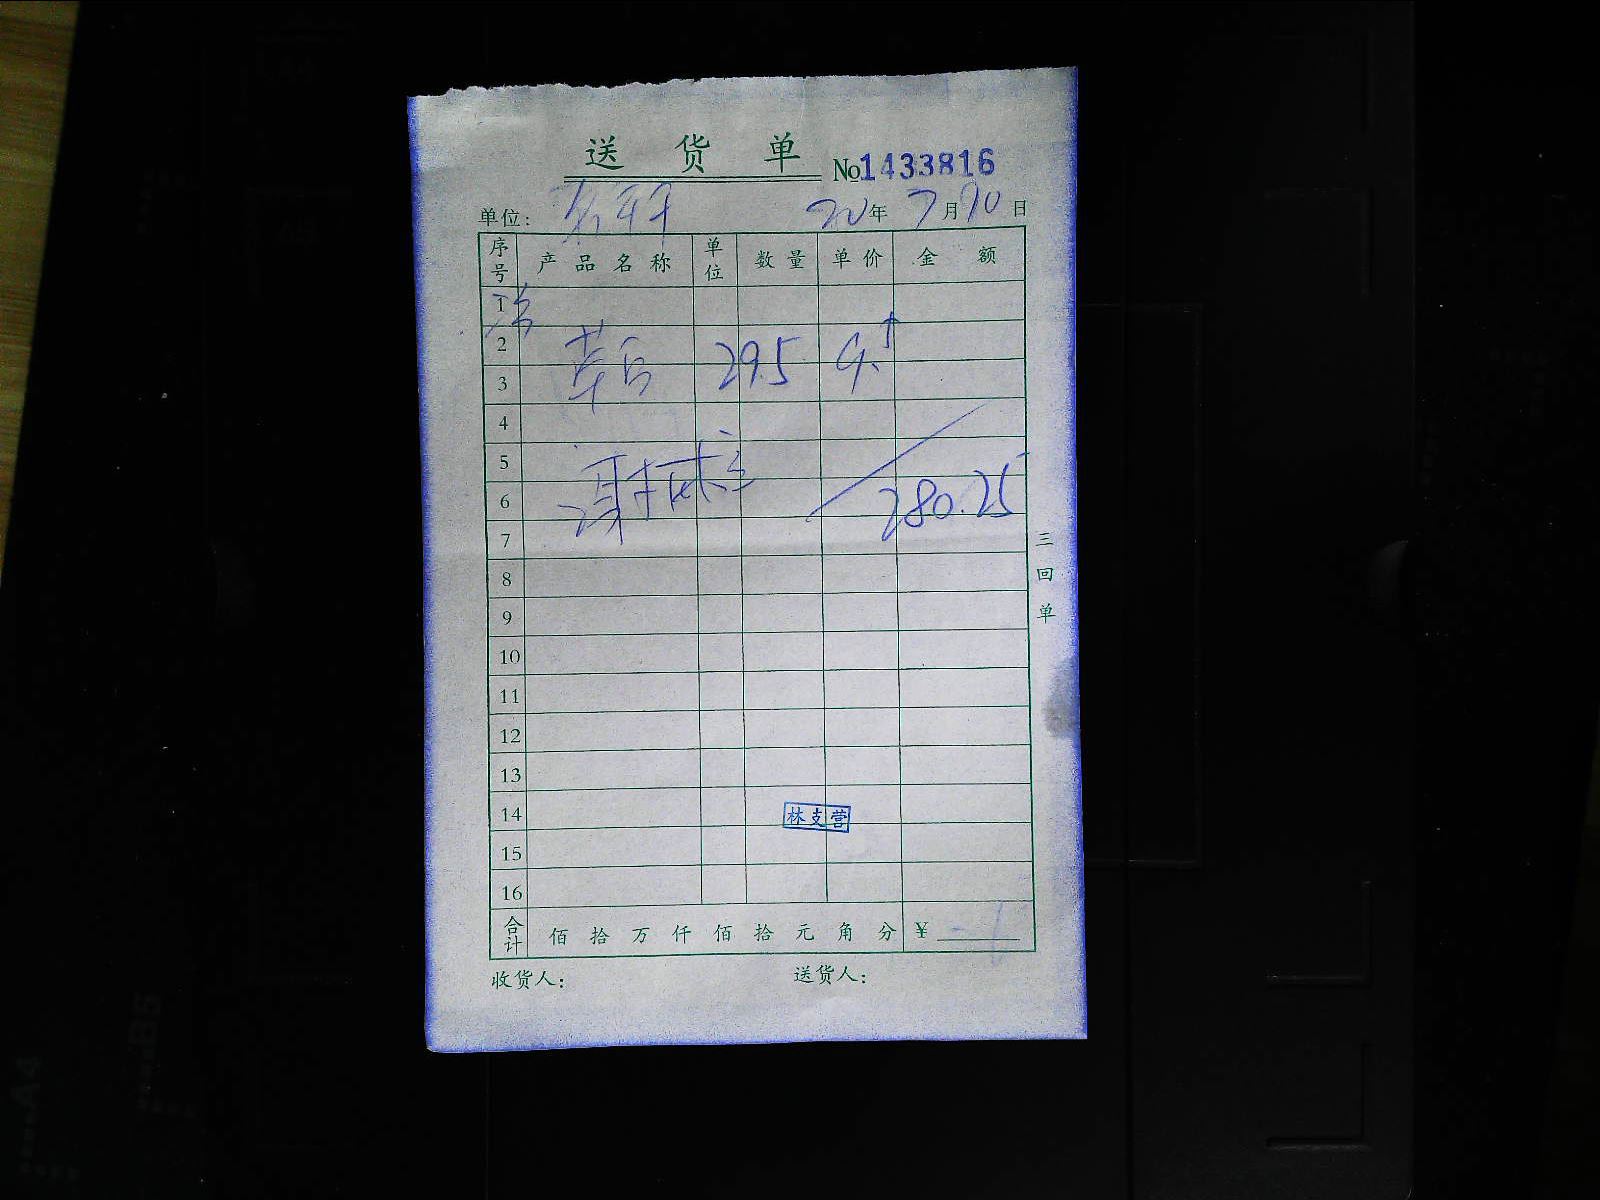 送 货 单
No1433816
单位:
20年 7月10日
序号 产品名称 单位 数量 单价 金额
1
2
29.5 9.5
3
4
5
6
280.25
7
三回单
8
9
10
11
12
13
14
林支营
15
16
合计 佰 拾 万 仟 佰 拾 元 角 分 ¥
收货人: 送货人: